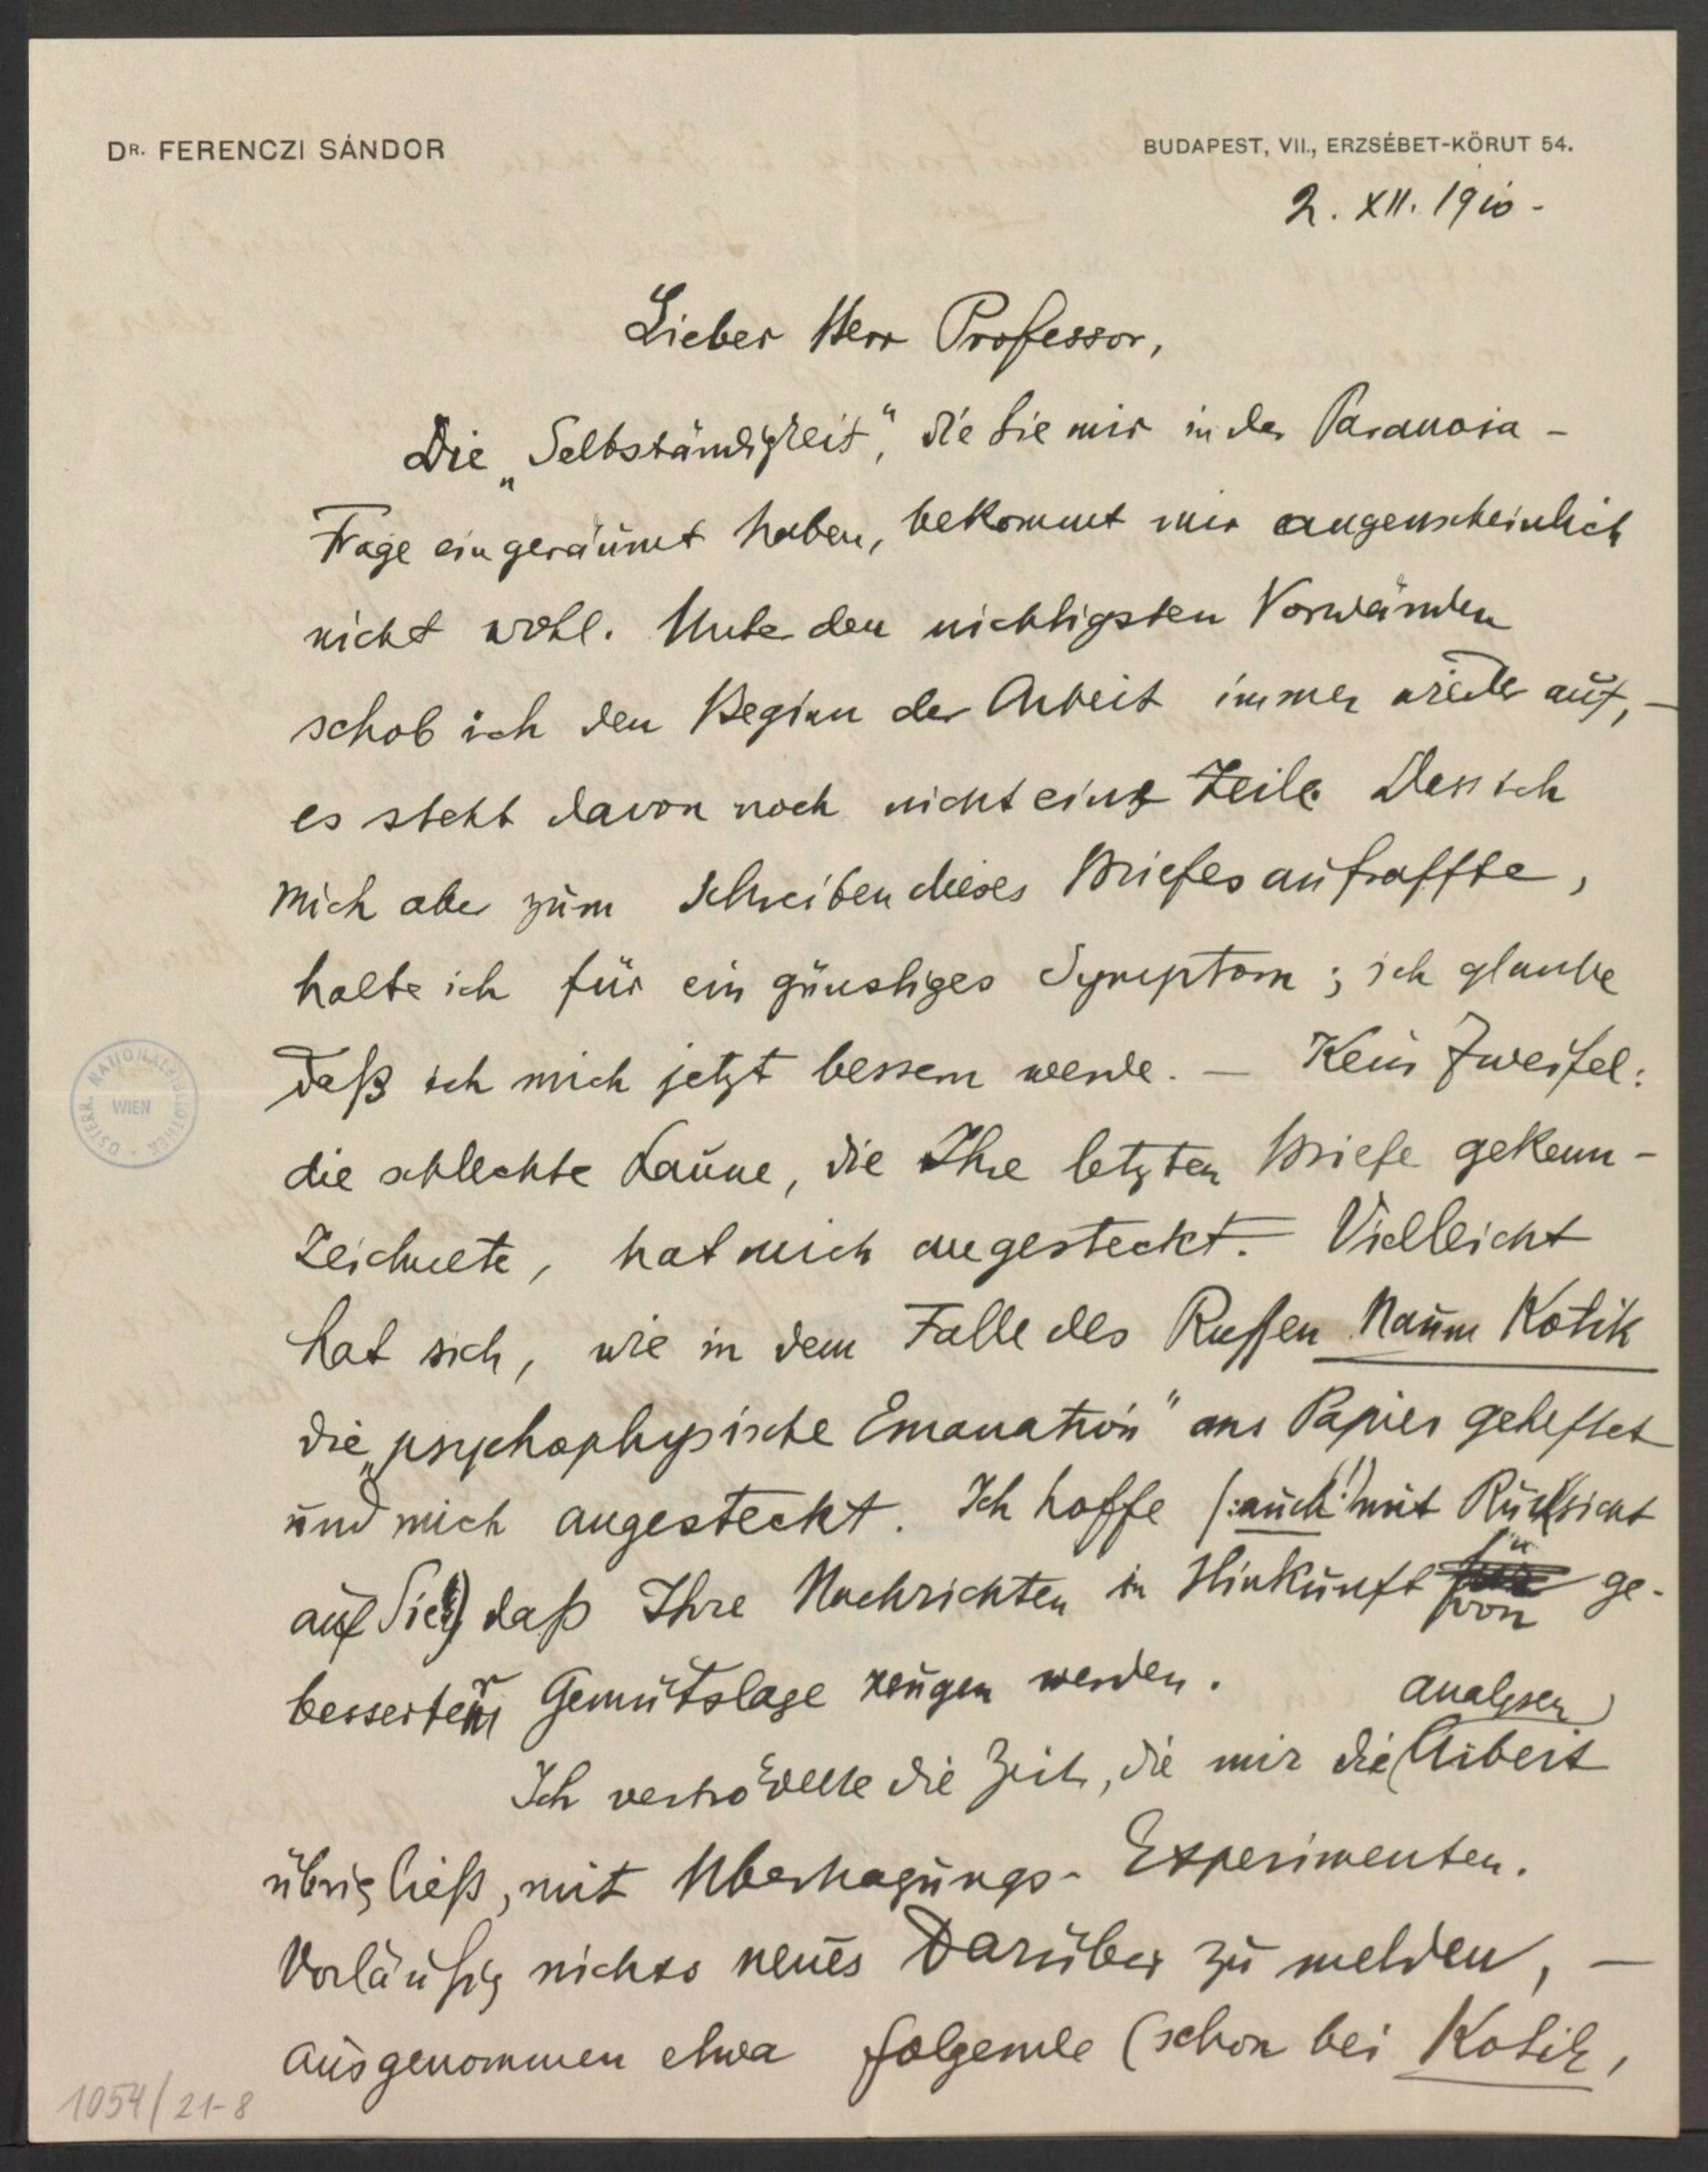 DR. FERENCZI SÁNDOR
BUDAPEST, VII., ERZSÉBET-KÖRUT 54.
2. XII. 1910 -
Lieber Herr Professor,
Die „Selbständigkeit“, die Sie mir in der Paranoia -
Frage eingeräumt haben, bekommt mir augenscheinlich
nicht wohl. Unter den nichtigsten Vorwänden
schob ich den Beginn der Arbeit immer wieder auf, -
es steht davon noch nicht eine Zeile. Dass ich
mich aber zum Schreiben dieses Briefes aufraffte,
halte ich für ein günstiges Symptom; ich glaube
daß ich mich jetzt bessern werde. — Kein Zweifel:
die schlechte Laune, die Ihre letzten Briefe gekenn-
zeichnete, hat mich angesteckt. Vielleicht
hat sich, wie in dem Falle des Russen Naum Kotik
die „psychophysische Emanation“ ans Papier geheftet
und mich angesteckt. Ich hoffe (:auch! mit Rücksicht
auf Sie:) daß Ihre Nachrichten in Hinkunft von ge-
besserter Gemütslage zeugen werden.
Ich vertrödelte die Zeit, die mir die analysen
Arbeit
übrig ließ, mit Übertragungs- Experimenten.
Vorläufig nichts neues darüber zu melden, —
ausgenommen etwa folgende (schon bei Kotik,
ÖSTERR. NATIONALBIBLIOTHEK
WIEN
1054/21-8